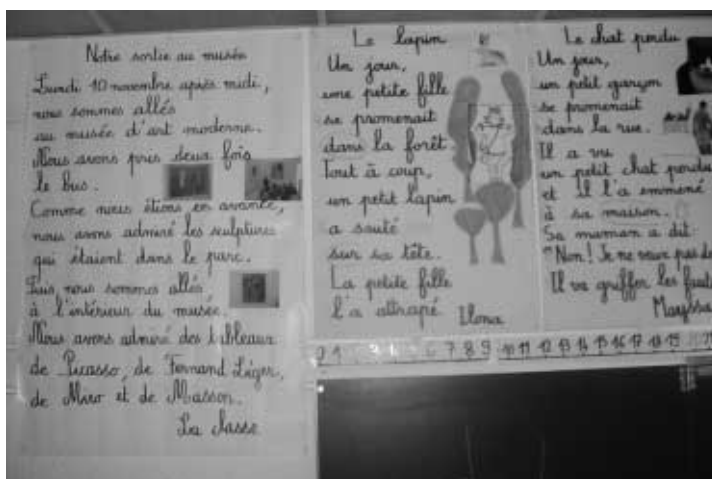 Notre sortie au musée
Lundi 10 novembre après midi,
nous sommes allés
au musée d'art moderne.
Nous avons pris deux fois
le bus.
Comme nous étions en avance,
nous avons admiré les sculptures
qui étaient dans le parc.
Puis, nous sommes allés
à l'intérieur du musée.
Nous avons admiré des tableaux
de Picasso, de Fernand Léger,
de Miro et de Masson.
La classe
Le lapin
Un jour,
une petite fille
se promenait
dans la forêt.
Tout à coup,
un petit lapin
a sauté
sur sa tête.
La petite fille
l'a attrapé.
Ilona
Le chat perdu
Un jour,
un petit garçon
se promenait
dans la rue.
Il a vu
un petit chat perdu
et il l'a emmené
à sa maison.
Sa maman a dit:
"Non! Je ne veux pas de
Il va griffer les
Mayssa
0 1 2 3 4 5 6 7 8 9 10 11 12 13 14 15 16 17 18 19 20